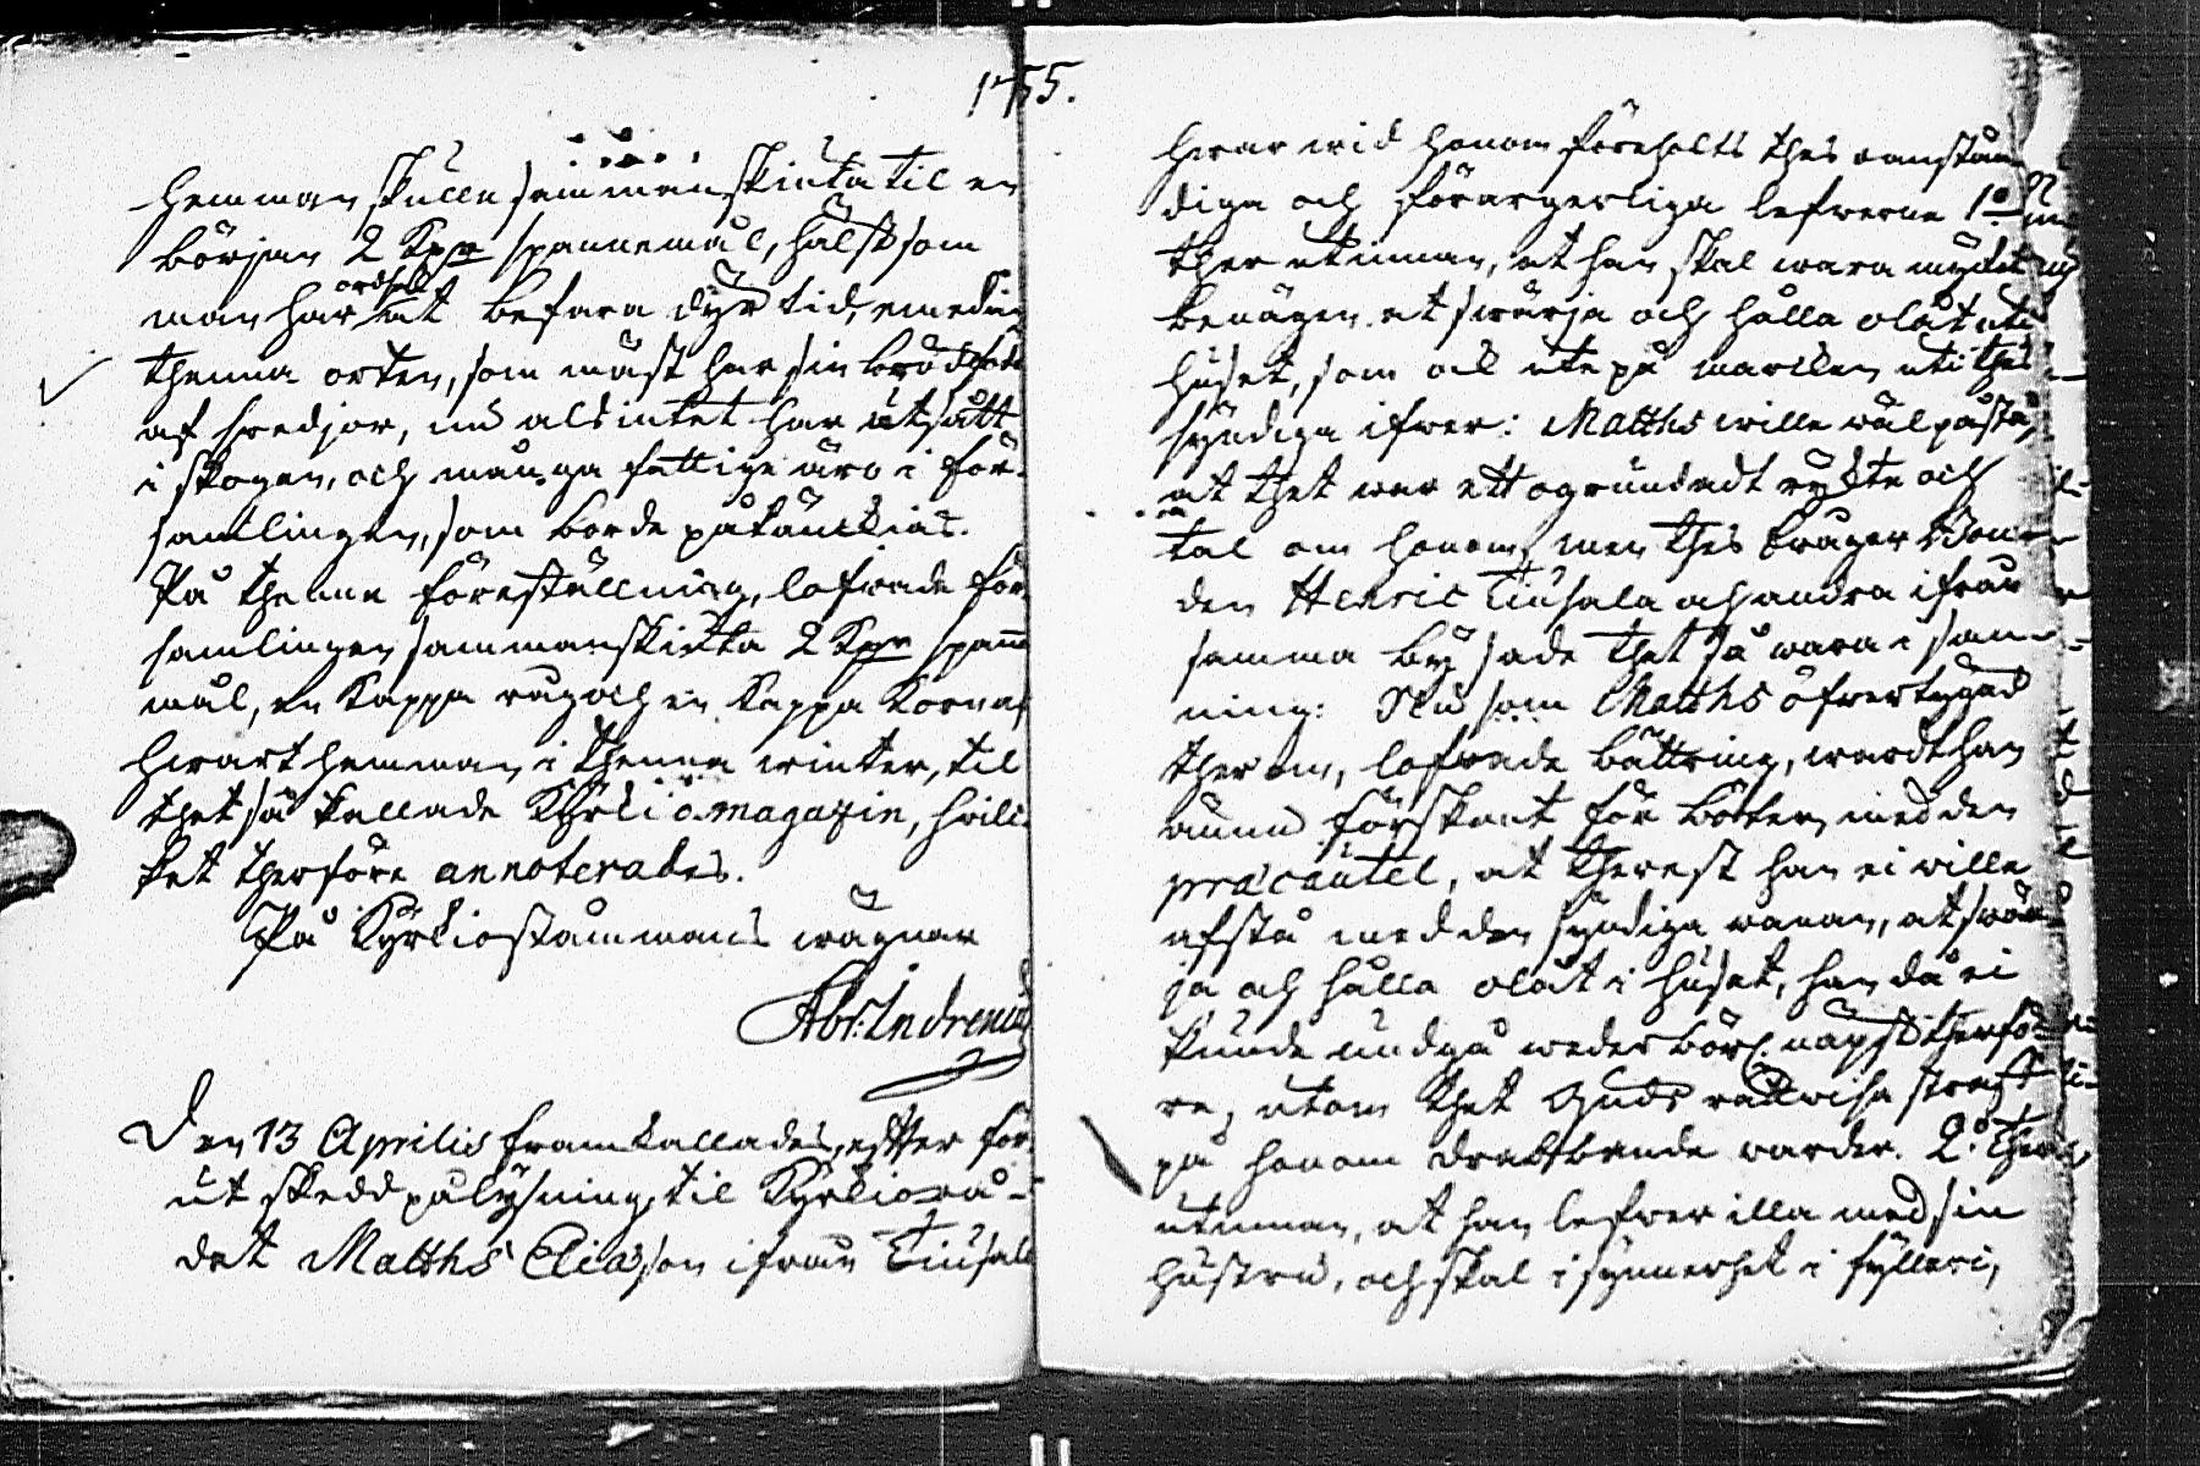 1755.
hemman skulle sammanskiuta til en
början 2 Kpr spannemål, hälst som
man har orsak at befara dyr tid, emedan
thenna orten, som mäst har sin brödföda
af swedjor, nu als intet har utsått
i skogen, och många fattige äro i för-
samlingen, som borde påtänckias.
På thenna föreställning, lofwade för-
samlingen sammanskiuta 2 Kpr spann-
mål, en Kappa rug och en Kappa Korn af
hwart hemman i thenna winter, til
thet så kallade Kyrkio magazin, hwil-
ket therföre annoterades.
På Kyrkiostämmans wägnar
Abr: Indrenius
Den 13 Aprilis framkallades, efter för-
ut skedd pålysning, til Kyrkiorå-
det Matths Eliasson ifrån Tiusala
hwar wid honom föreholts thes oanstän-
diga och förargerliga lefwerne 1o
ther utinnan, at han skal wara mycket
benägen at swärja och hålla olåt uti
huset, som ock ute på marcken uti thes
syndiga ifwer: Matths wille wäl påstå,
at thet war ett ogrundadt rychte och
tal om honom, men thes krager Bon-
den Henric Tiusala och andra ifrån
samma by sade thet så wara i san-
ning: Nu som Matths öfwertygad
ther om, lofwade bättring, wardt han
ännu förskont för böter, med den
præcautel, at therest han ei wille
afstå med den syndiga wanan, at swär-
ja och hålla olåt i huset, han då ei
kunde undgå wederbörl. näpst therfö-
re, utom thet Guds rättwisa straff
på honom drabbande warder. 2o Ther
utinnan, at han lefwer illa med sin
hustru, och skal i synnerhet i fylleri,